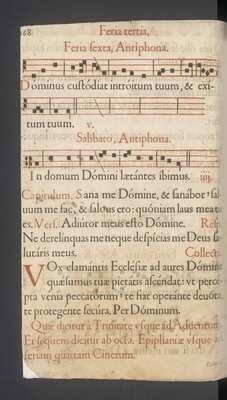 168
Feria tertia,
Feria sexta, Antiphona.
Dominus custódiat introitum tuum, & exi-
tum tuum. v.
Sabbato, Antiphona.
In domum Dómini lætántes ibimus. iiij.
Capitulum. Sana me Dómine, & sanábor: sal-
uum me fac, & saluus ero: quóniam laus mea tu
es. Vers. Adiútor meus esto Dómine. Resp.
Ne derelinquas me neque despícias me Deus sa-
lutáris meus. Collecta
VOx clamántis Ecclésiæ ad aures Dómine
quæsumus tuæ pietátis ascéndat: vt percé-
pta vénia peccatórum: te fiat operánte deuóta,
te protegénte secúra. Per Dóminum.
Quæ dicitur à Trinitate vsque ad Aduentum
Et sequens dicitur ab octa. Epiphaniæ vsque ad
feriam quartam Cinerum.